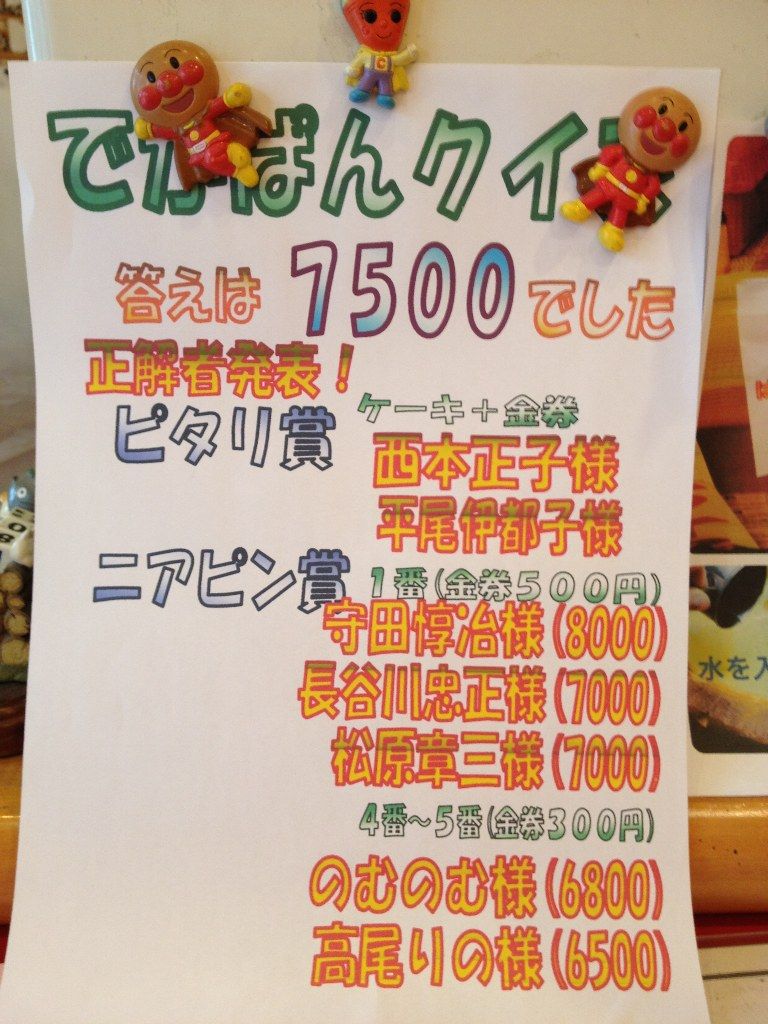 でかばんクイズ
答えは 7500 でした
正解者発表！
ピタリ賞 ケーキ＋金券
西本正子様
平尾伊都子様
ニアピン賞 1番(金券５００円)
守田惇冶様(8000)
長谷川忠正様(7000)
松原章三様(7000)
4番〜5番(金券３００円)
のむのむ様(6800)
高尾りの様(6500)
水を入